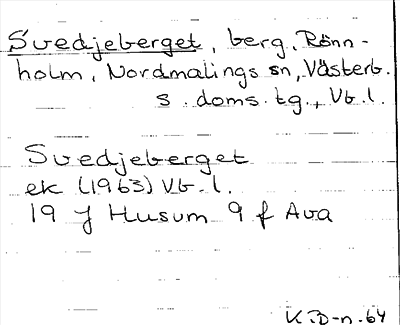 Svedjeberget, berg, Rönn-
holm, Nordmalings sn, Västerb.
s. doms. tg., Vb. l.
Svedjeberget
ek (1963) Vb. l.
19 J Husum 9 f Ava
K.D-n. 64